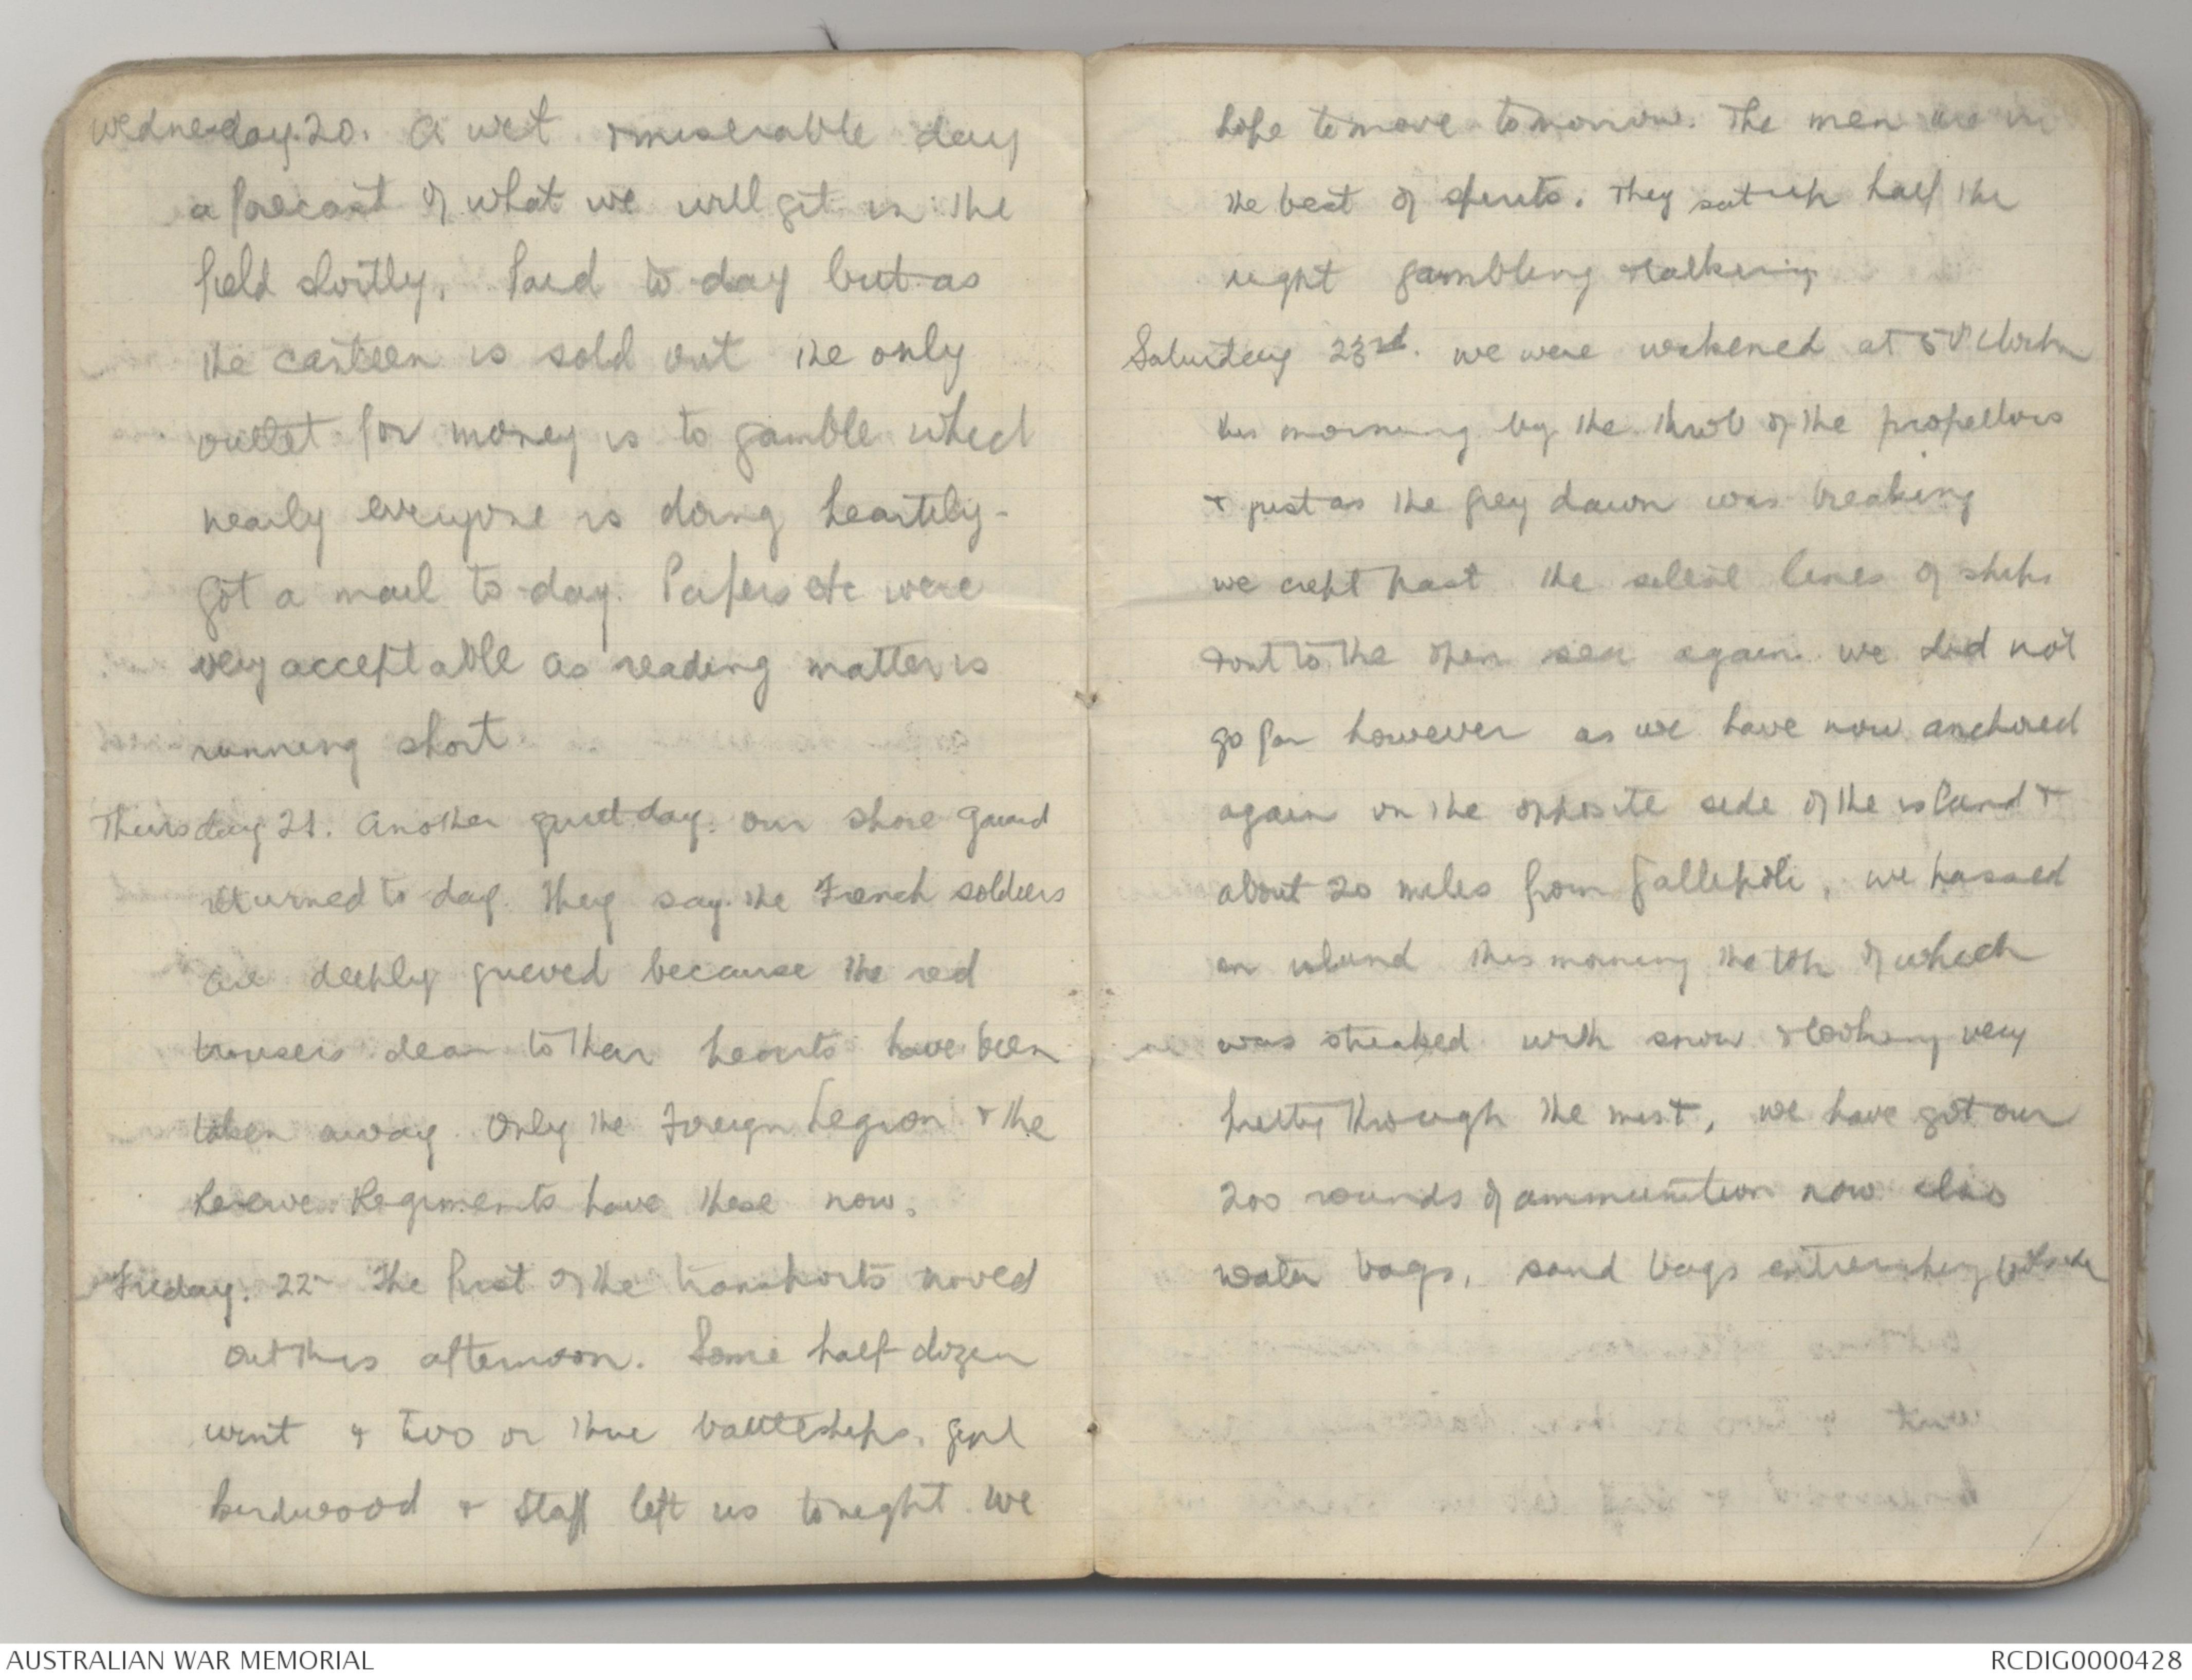 Wednesday 20. A wet & miserable day
a forecast of what we will get in the
field shortly. Paid to-day but as
the canteen is sold out the only
outlet for money is to gamble which
nearly everyone is doing heartily -
Got a mail to-day. Papers etc were
very acceptable as reading matter is
running short
Thursday 21. Another quiet day. Our shore guard
returned to day. They say the French soldiers
are deeply grieved because the red
trousers dear to their hearts have been
taken away. Only the Foreign Legion & the
Reserve Regiments have these now.
Friday. 22 The first of the transports moved
out this afternoon. Some half dozen
went & two or three battleships. Genl
Birdwood & Staff left us tonight. We
hope to move tomorrow. The men are in
the best of spirits. They sat up half the
night gambling & talking
Saturday 23rd. we were wakened at 5 O'clock
this morning by the throb of the propellors
& just as the grey dawn was breaking
we crept past the silent lines of ships
& out to the open sea again. we did not
go far however as we have now anchored
again on the opposite side of the island &
about 20 miles from Gallipoli. we passed
an island this morning the top of which
was streaked with snow & looking very
pretty through the mist. we have got our
200 rounds of ammunition now also
water bags, sand bags entrenching
AUSTRALIAN WAR MEMORIAL
RCDIG0000428